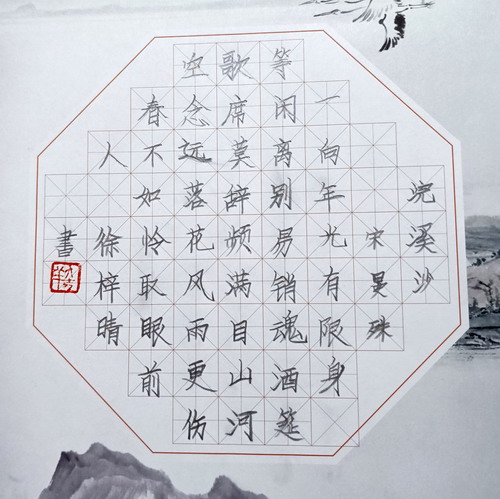 浣溪沙
宋晏殊
一向年光有限身
等闲离别易销魂酒筵
歌席莫辞频满目山河
空念远落花风雨更伤
春不如怜取眼前
人 徐梓晴
書